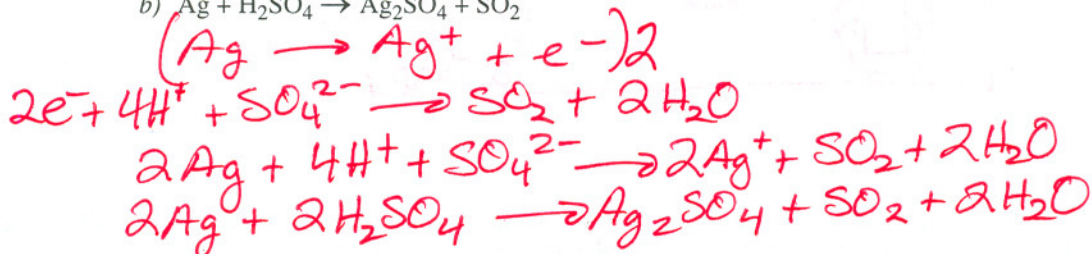 b) Ag + H₂SO₄ → Ag₂SO₄ + SO₂
(Ag → Ag⁺ + e⁻)2
2e⁻ + 4H⁺ + SO₄²⁻ → SO₂ + 2H₂O
2Ag + 4H⁺ + SO₄²⁻ → 2Ag⁺ + SO₂ + 2H₂O
2Ag + 2H₂SO₄ → Ag₂SO₄ + SO₂ + 2H₂O